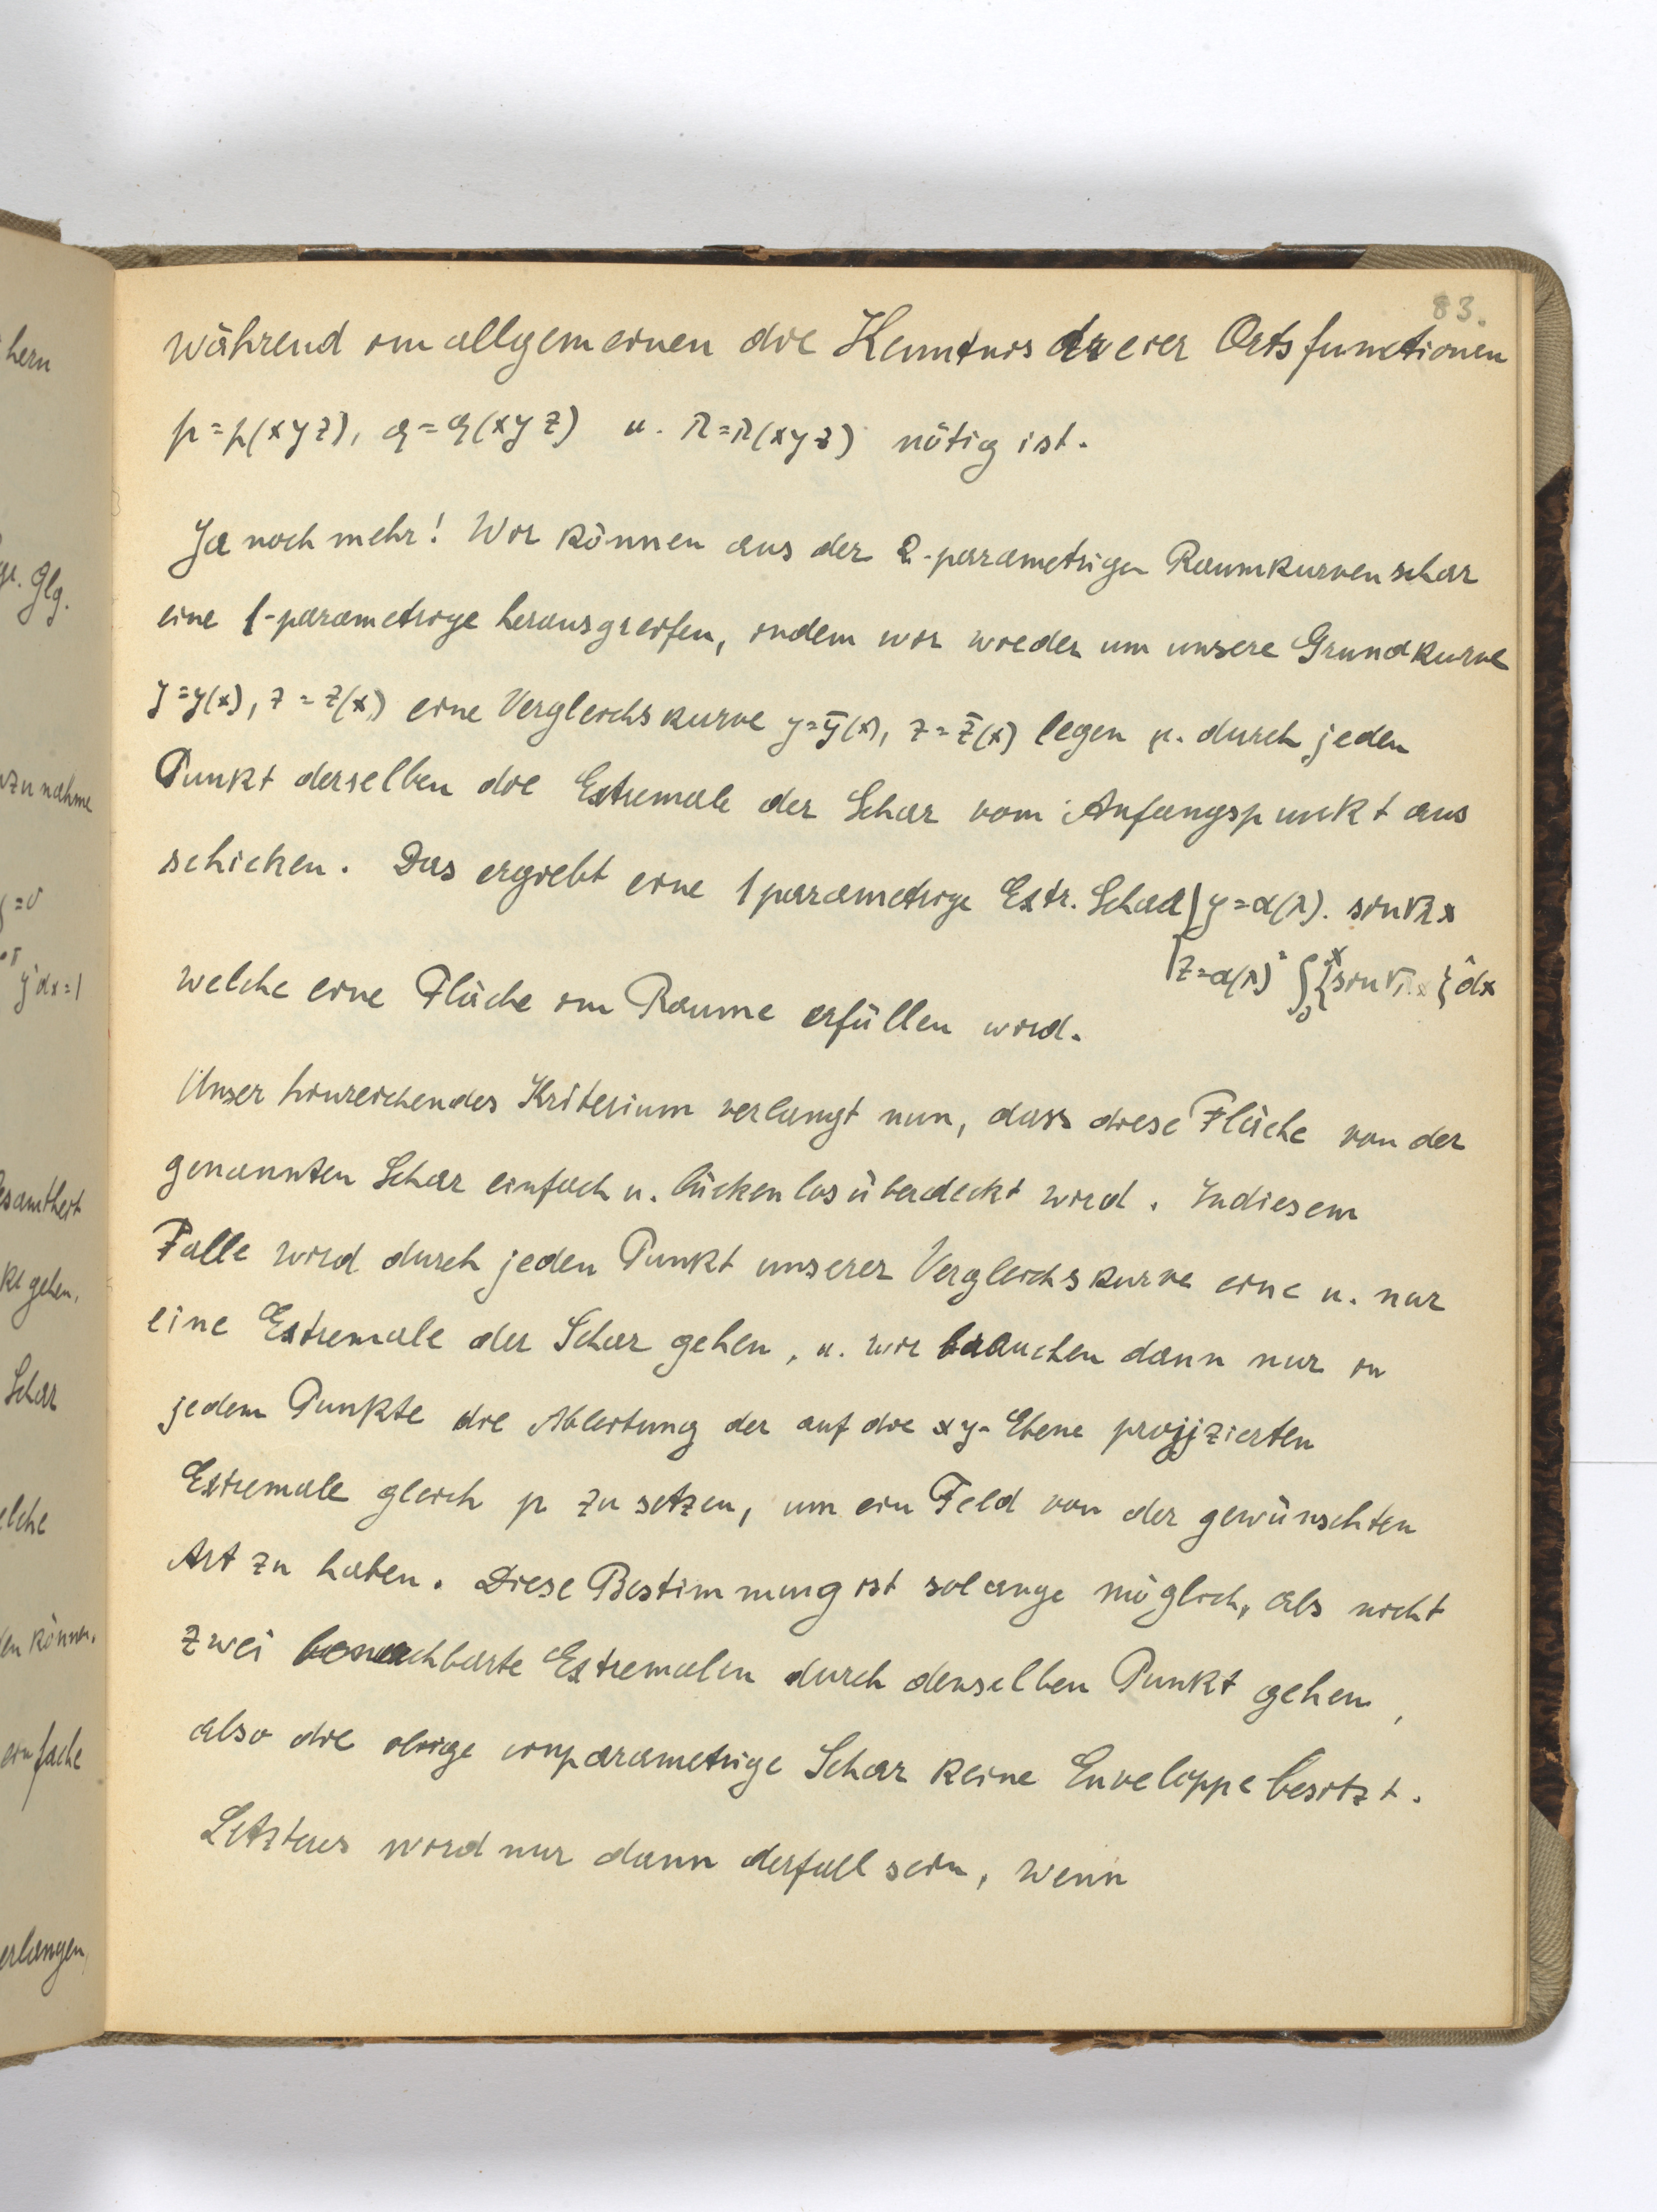 83.
während im allgemeinen die Kenntnis dreier Ortsfunctionen
p = p(xyz), q = q(xyz) u. r = r(xyz) nötig ist.
Ja noch mehr! Wir können aus der 2-parametrigen Raumkurvenschar
eine 1-parametrige herausgreifen, indem wir wieder um unsere Grundkurve
y = y(x), z = z(x) eine Vergleichskurve y = ȳ(x), z = z̄(x) legen u. durch jeden
Punkt derselben die Extremale der Schar vom Anfangspunkt aus
schicken. Das ergiebt eine 1parametrige Extr. Schar { y = α(λ). sin √λ x
z = α(λ)² ∫₀ˣ {sin √λ x}² dx
welche eine Fläche im Raume erfüllen wird.
Unser hinreichendes Kriterium verlangt nun, dass diese Fläche von der
genannten Schar einfach u. lückenlos überdeckt wird. In diesem
Falle wird durch jeden Punkt unserer Vergleichskurve eine u. nur
eine Extremale der Schar gehen, u. wir brauchen dann nur in
jedem Punkte die Ableitung der auf die xy-Ebene projizierten
Extremale gleich p zu setzen, um ein Feld von der gewünschten
Art zu haben. Diese Bestimmung ist solange möglich, als nicht
zwei benachbarte Extremalen durch denselben Punkt gehen,
also die obige einparametrige Schar keine Enveloppe besitzt.
Letzteres wird nur dann der fall sein, wenn
hern
Glg.
nahme
=0
y² dx = 1
esamtheit
kt gehen,
Schar
elche
en können,
einfache
erlangen,